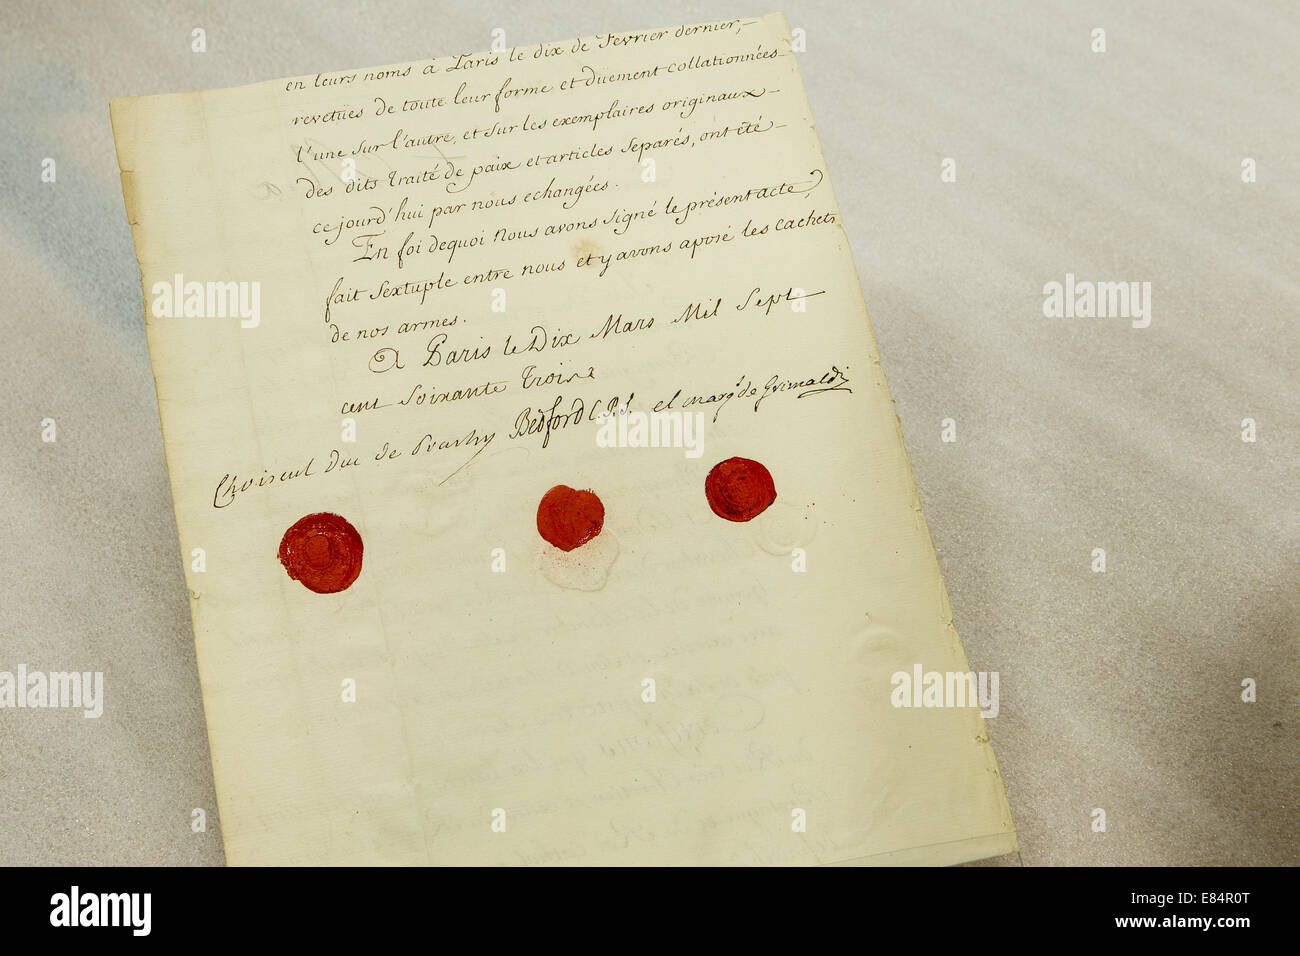 en leurs noms à Paris le dix de Fevrier dernier,-
revetües de toute leur forme et duement collationnées-
l'une sur l'autre, et sur les exemplaires originaux-
des dits traité de paix et articles séparés, ont été-
ce jourd'hui par nous echangées.
En foi dequoi Nous avons signé le présent acte,
fait Sextuple entre nous et y avons aposé les cachets
de nos armes.
A Paris le Dix Mars Mil Sept
cent Soixante Trois
Choiseul Duc de Praslin Bedford C.P.S. el marq.s de Grimaldi
alamy
alamy
alamy
alamy
alamy
Image ID: E84R0T
www.alamy.com